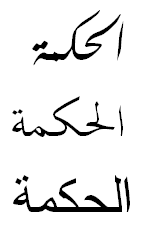 الحكمة
الحكمة
الحكمة